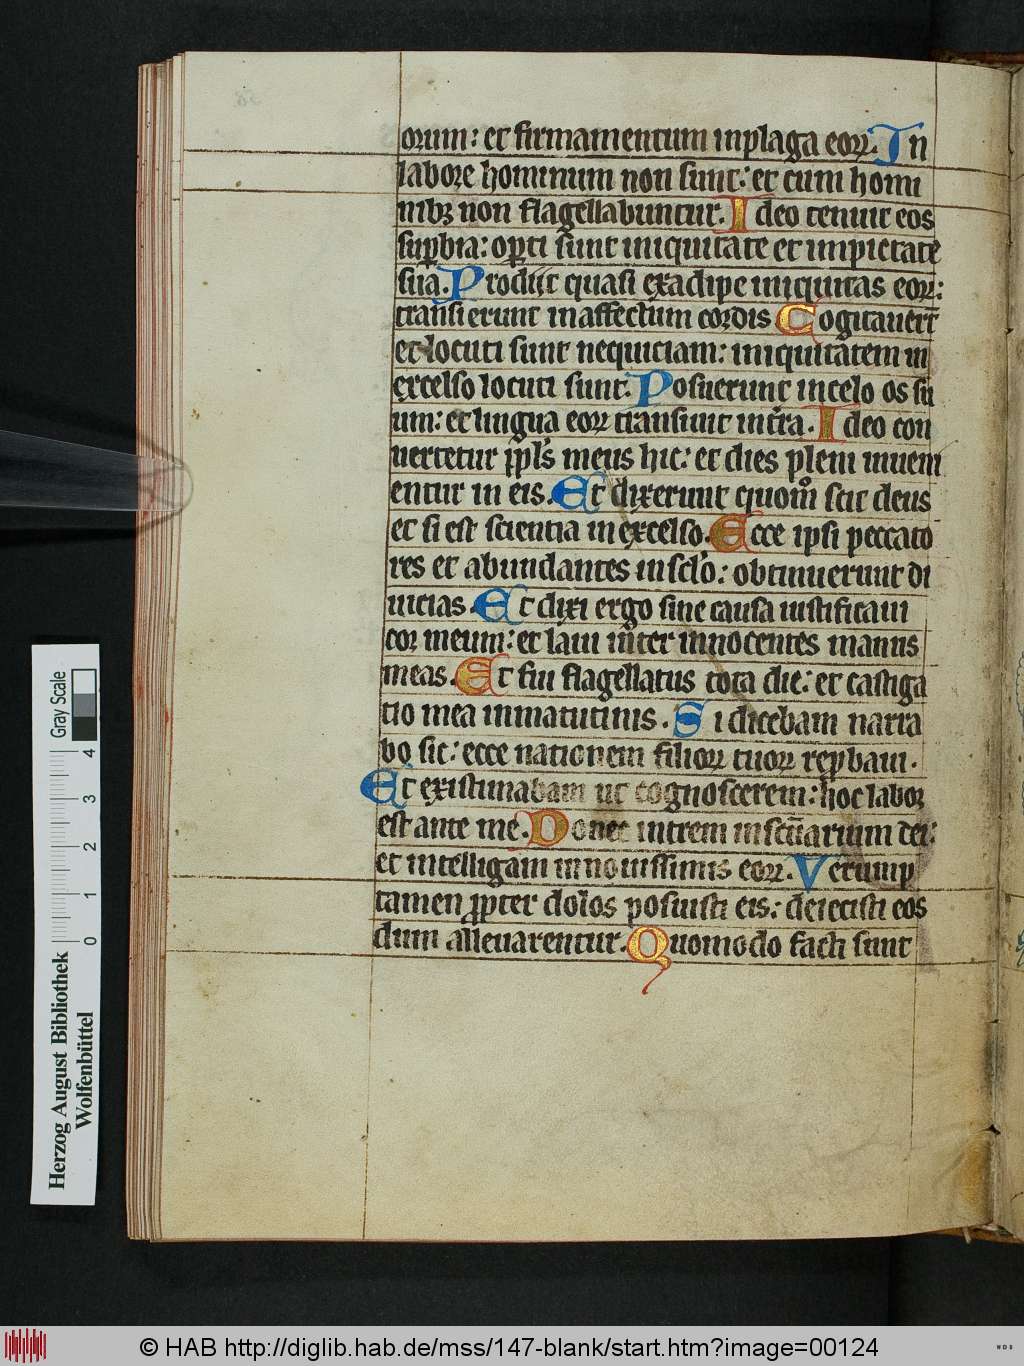 orum: et firmamentum in plaga eoꝝ. In
labore hominum non sunt: et cum homi
nibꝫ non flagellabuntur. Ideo tenuit eos
suꝑbia: oꝑti sunt iniquitate et impietate
sua. Prodiit quasi ex adipe iniquitas eoꝝ:
transierunt in affectum cordis Cogitauerūt
et locuti sunt nequiciam: iniquitatem in
excelso locuti sunt. Posuerunt in celo os su
um: et lingua eoꝝ transiuit in tr̄a. Ideo con
uertetur ppl̄s meus hic: et dies pleni inueni
entur in eis. Et dixerunt quom̄o scit deus
et si est scientia in excelso. Ecce ipsi peccato
res et abundantes in sclō: obtinuerunt di
uicias. Et dixi ergo sine causa iustificaui
cor meum: et laui int̄er innocentes manus
meas. Et fui flagellatus tota die: et castiga
tio mea in matutinis. Si dicebam narra
bo sic: ecce nationem filioꝝ tuoꝝ reꝓbaui.
Et existimabam ut cognoscerem: hoc labor
est ante me. Donec intrem in scūarium dei:
et intelligam in nouissimis eoꝝ. Verump
tamen ꝓpter dolos posuisti eis: deiecisti eos
dum alleuarentur. Quomodo facti sunt
Gray Scale
4
3
2
1
0
Herzog August Bibliothek
Wolfenbüttel
© HAB http://diglib.hab.de/mss/147-blank/start.htm?image=00124